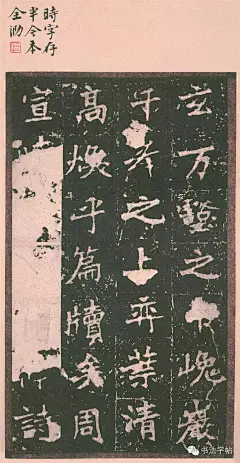 時字存
半今本
全泐
玄万壑之下巍巖
千之上弈葉清
高煥乎篇牘矣周
宣詩
书法字帖